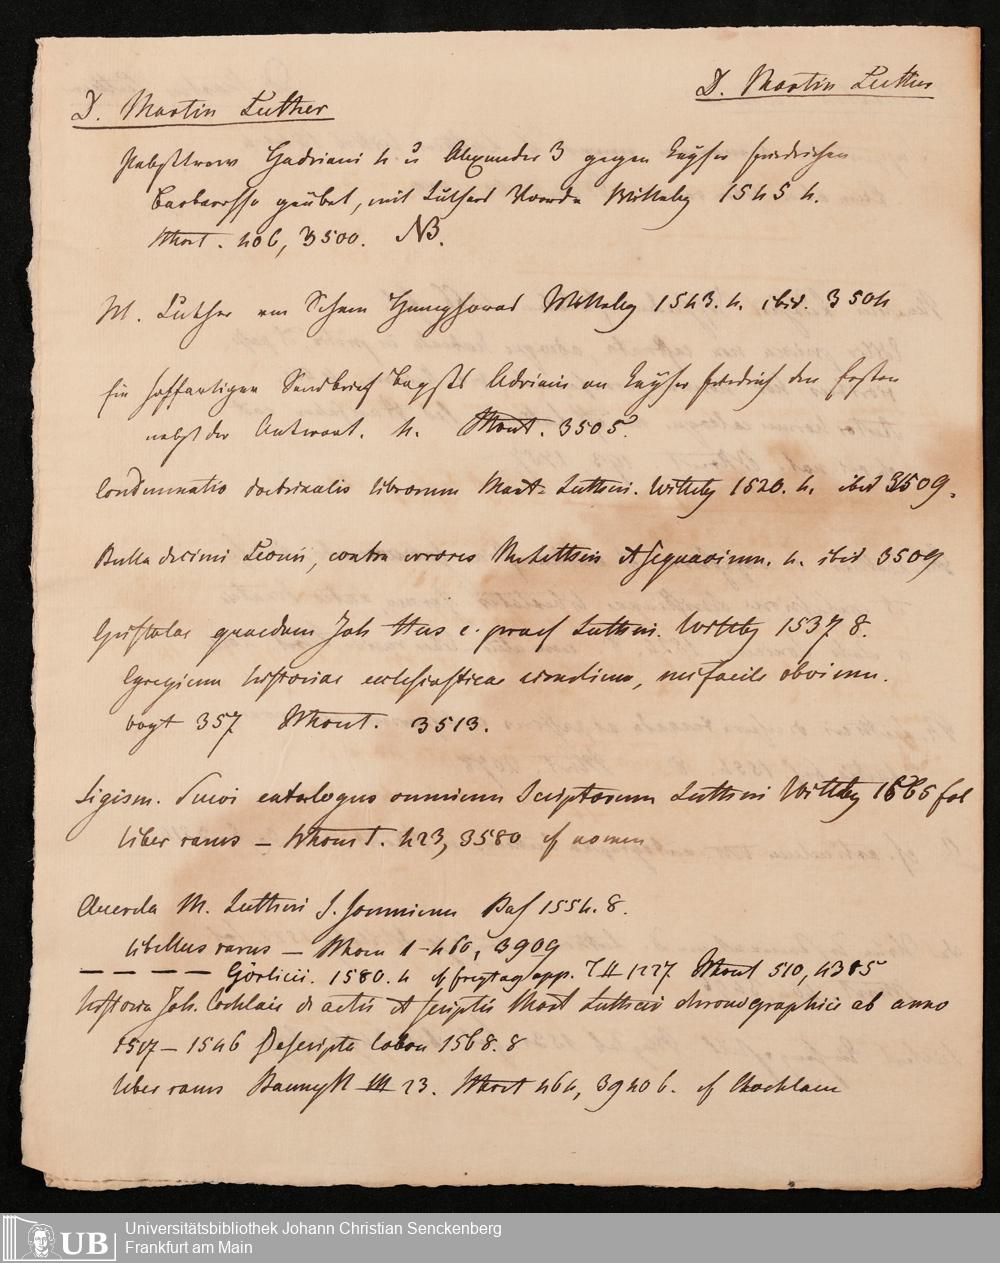 D. Martin Luther
D. Martin Luther
Pabsttrew Hadriani 4 u Alexander 3 gegen Kayser Friedrichen
Barbarossa geübet, mit Luthers Vorrede Wittebg 1545 4.
Thort. 406, 3500. NB.
M. Luther von Schem Hamphoras Wittebg 1543. 4. ibid. 3504
Ein hoffartigen Sendbrief Bapsts Adriani an Kayser Friedrich den Ersten
nebst der Antwort. 4. 3505.
Condemnatio doctrinalis librorum Mart. Lutheri. Wittbg 1520. 4. ibid 3509.
Bulla decimi Leonis, contra errores M. Lutheri & sequacium. 4. ibid 3509
Epistolae quaedam Joh Hus c. praef Lutheri. Wittbg 1537 8.
Egregium historiae ecclesiasticae, nec facile obvium.
vogt 357 3513.
Sigism. Suevi catalogus omnium Scriptorum Lutheri Wittbg fol
liber rarus — 423, 3580 cf nomen
Querela M. Lutheri S. Somnium Bas 1554. 8.
libellus rarus — 460, 3909
— — — — Görlicii. 1580. 4 cf freytag app. T II 1227. 510, 4385
historia Joh. Cochlaei de actis & scriptis Mart Lutheri chronographice ab anno
1517 — 1546 Descripta Colon 1568. 8
liber rarus 23. 464, 3940 b. cf Chochlaeum
UB
Universitätsbibliothek Johann Christian Senckenberg
Frankfurt am Main